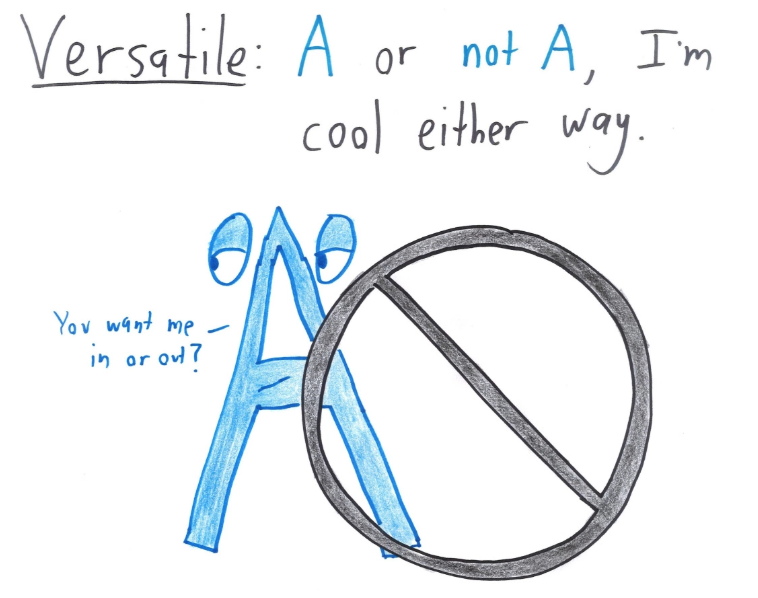 Versatile: A or not A, I'm
cool either way.
You want me
in or out?